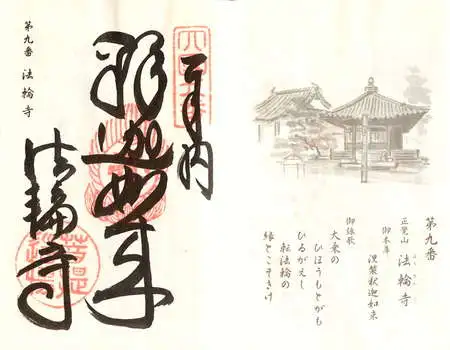 第九番
正覚山 法輪寺
御本尊 涅槃釈迦如来
御詠歌
大乗の
ひほうもとがも
ひるがえし
転法輪の
縁とこそきけ
奉納
釋迦如来
法輪寺
第九番 法輪寺